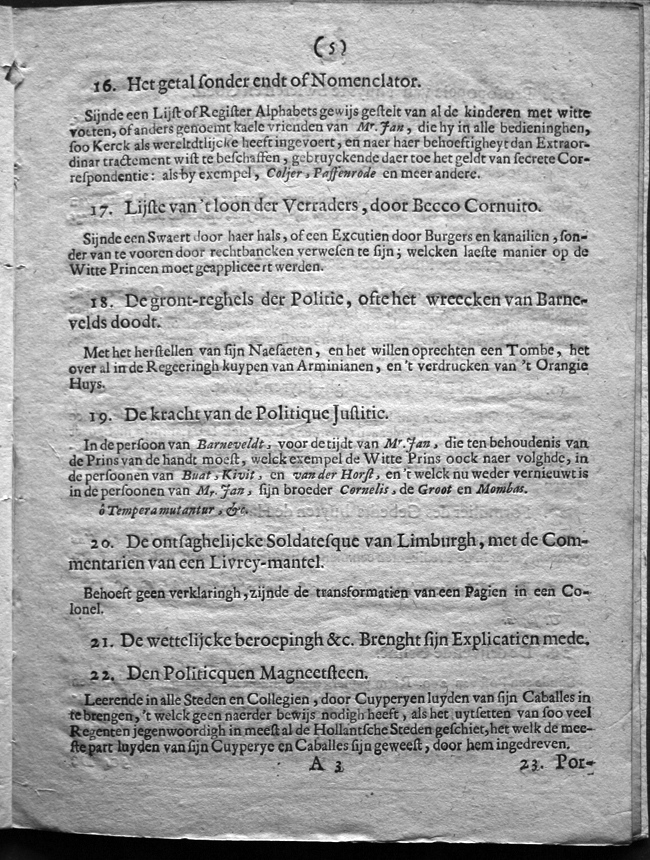 (5)
16. Het getal ſonder endt of Nomenclator.
Sijnde een Lijſt of Regiſter Alphabets gewijs geſtelt van al de kinderen met witte
voeten, of anders genoemt kaele vrienden van Mr. Jan, die hy in alle bedieninghen,
ſoo Kerck als wereltdtlijcke heeft ingevoert, en naer haer behoeftigheyt dan Extraor-
dinar tractement wiſt te beſchaffen, gebruyckende daer toe het geldt van ſecrete Cor-
reſpondentie: als by exempel, Coljer, Paffenrode en meer andere.
17. Lijſte van 't loon der Verraders, door Becco Cornuito.
Sijnde een Swaert door haer hals, of een Excutien door Burgers en kanailien, ſon-
der van te vooren door rechtbancken verweſen te ſijn; welcken laeſte manier op de
Witte Princen moet geappliceert werden.
18. De gront-reghels der Politie, ofte het wreecken van Barne-
velds doodt.
Met het herſtellen van ſijn Naeſaeten, en het willen oprechten een Tombe, het
over al in de Regeeringh kuypen van Arminianen, en 't verdrucken van 't Orangie
Huys.
19. De kracht van de Politique Juſtitie.
In de perſoon van Barneveldt, voor de tijdt van Mr. Jan, die ten behoudenis van
de Prins van de handt moeſt, welck exempel de Witte Prins oock naer volghde, in
de perſoonen van Buat, Kivit, en van der Horſt, en 't welck nu weder vernieuwt is
in de perſoonen van Mr. Jan, ſijn broeder Cornelis, de Groot en Mombas.
ô Tempera mutantur, &c.
20. De ontſaghelijcke Soldateſque van Limburgh, met de Com-
mentarien van een Livrey-mantel.
Behoeft geen verklaringh, zijnde de transformatien van een Pagien in een Co-
lonel.
21. De wettelijcke beroepingh &c. Brenght ſijn Explicatien mede.
22. Den Politicquen Magneetſteen.
Leerende in alle Steden en Collegien, door Cuyperyen luyden van ſijn Caballes in
te brengen, 't welck geen naerder bewijs nodigh heeft, als het uytſetten van ſoo veel
Regenten jegenwoordigh in meeſt al de Hollantſche Steden geſchiet, het welk de mee-
ſte part luyden van ſijn Cuyperye en Caballes ſijn geweeſt, door hem ingedreven.
A 3 23. Por-